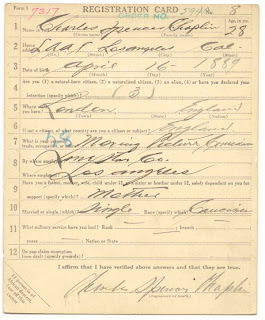 Form 1 7317 REGISTRATION CARD No. 8
ORDER NO.
1 Name in full Charles Spencer Chaplin Age, in yrs. 28
2 Home address L.A.A.C. Los angeles Cal.
3 Date of birth April 16 - 1889
4 Are you (1) a natural-born citizen, (2) a naturalized citizen, (3) an alien, (4) or have you declared your
intention (specify which)? (3)
5 Where were you born? London England
6 If not a citizen, of what country are you a citizen or subject? England
7 What is your present trade, occupation, or office? Moving Picture Comedian
8 By whom employed? Lone Star Co.
Where employed? Los angeles
9 Have you a father, mother, wife, child under 12, or a sister or brother under 12, solely dependent on you for
support (specify which)? Mother
10 Married or single (which)? Single Race (specify which)? Caucasian
11 What military service have you had? Rank branch
years Nation or State
12 Do you claim exemption from draft (specify grounds)?
I affirm that I have verified above answers and that they are true.
Charles Spencer Chaplin
(Signature or mark)